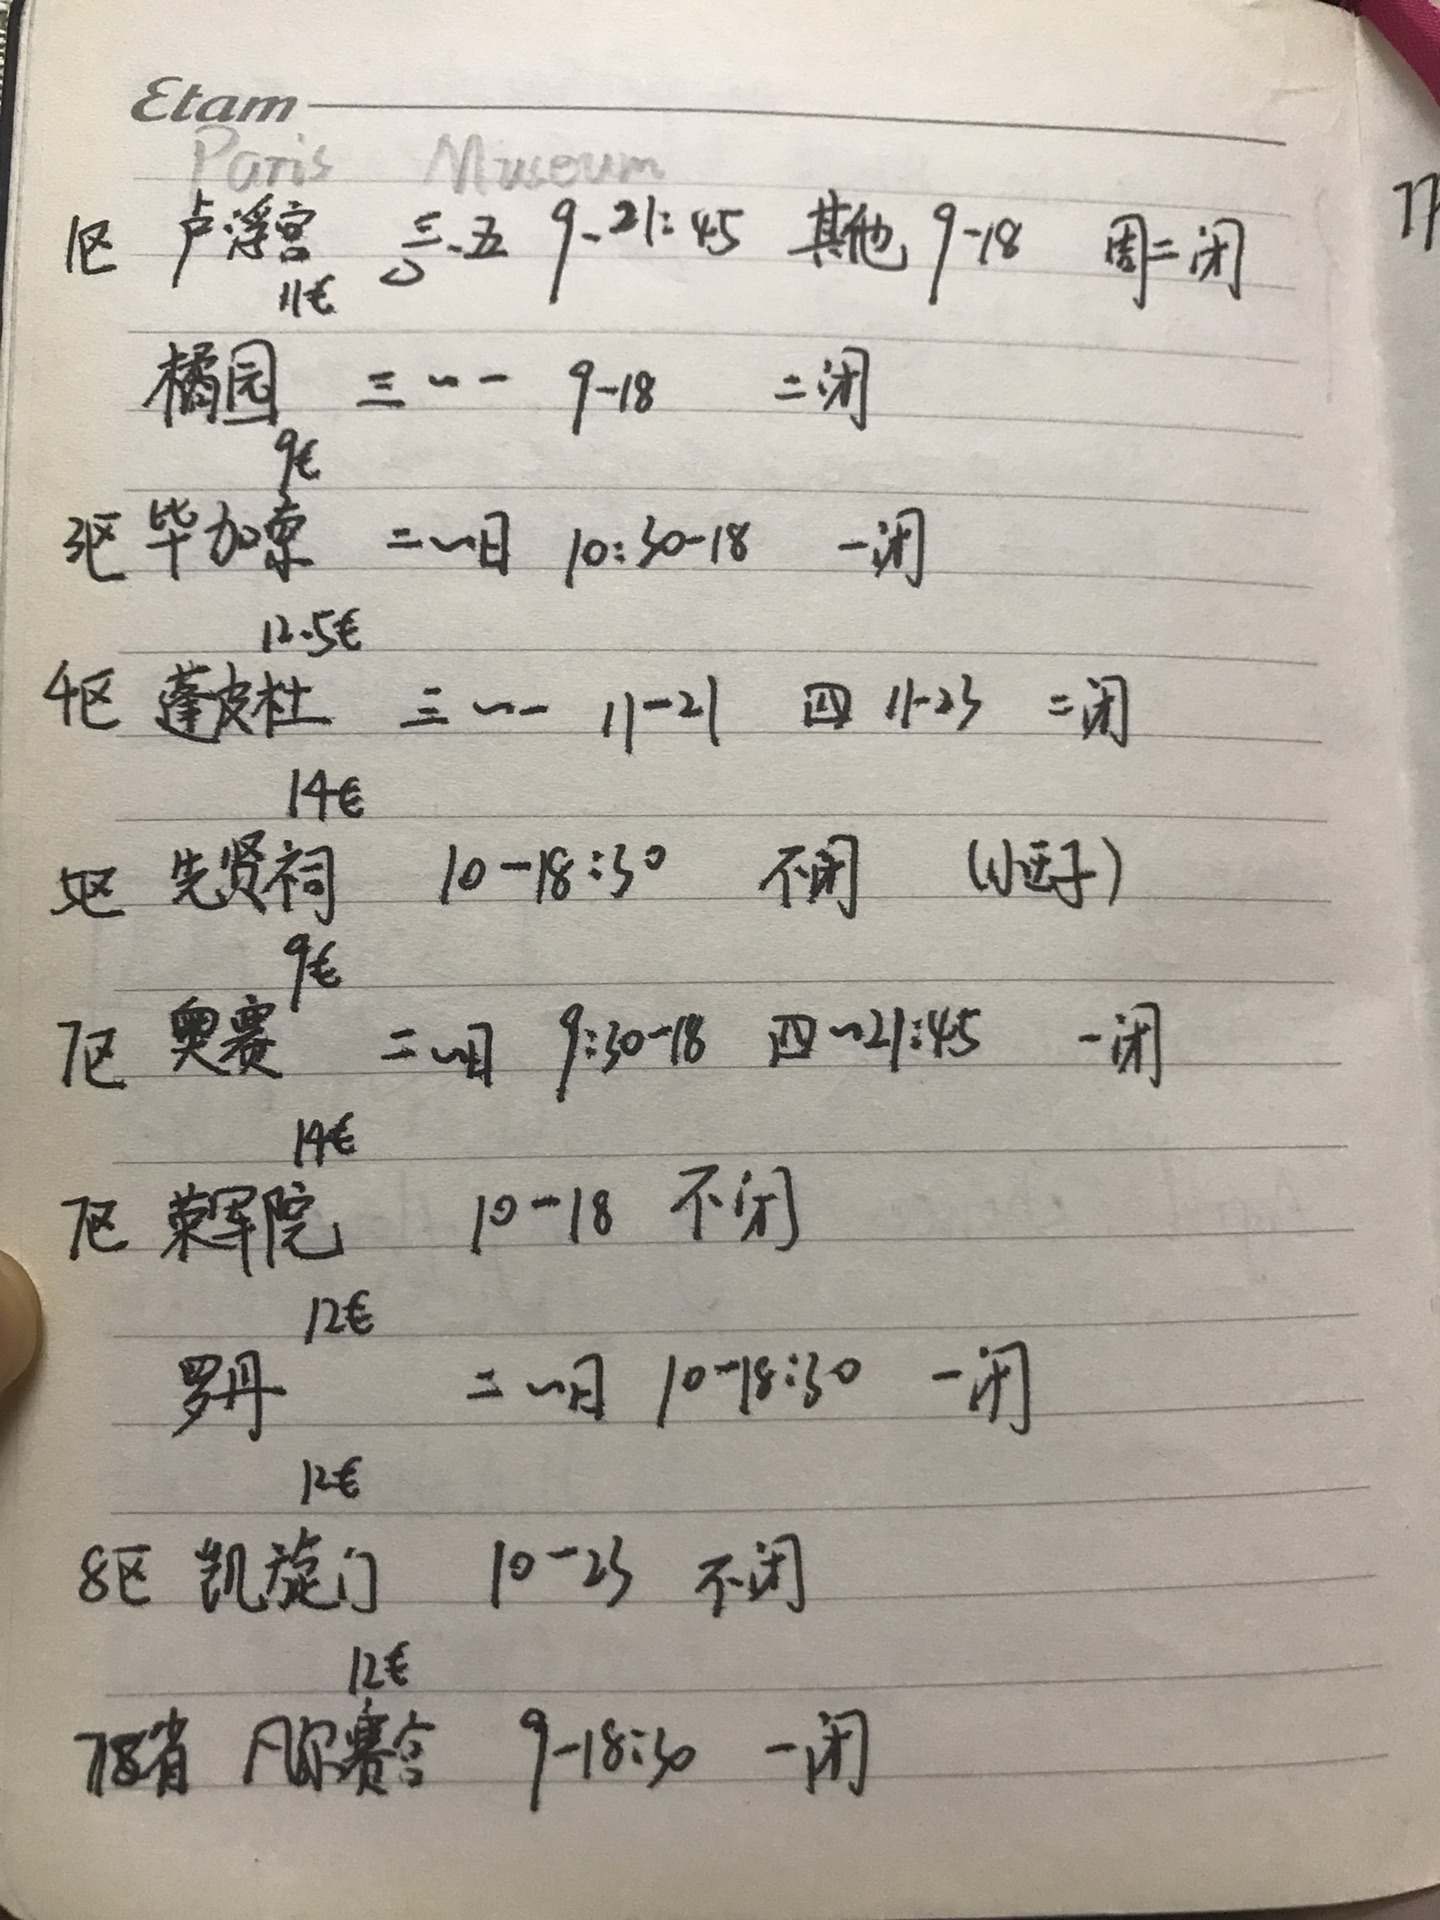 Etam
Paris Museum
1区 卢浮宫 三、五 9-21:45 其他 9-18 周二闭
11€
橘园 三~一 9-18 二闭
9€
3区 毕加索 二~日 10:30-18 一闭
12.5€
4区 蓬皮杜 三~一 11-21 四 11-23 二闭
14€
5区 先贤祠 10-18:30 不闭
9€
7区 奥赛 二~日 9:30-18 四~21:45 一闭
14€
7区 荣军院 10-18 不闭
12€
罗丹 二~日 10-18:30 一闭
12€
8区 凯旋门 10-23 不闭
12€
78省 凡尔赛宫 9-18:30 一闭